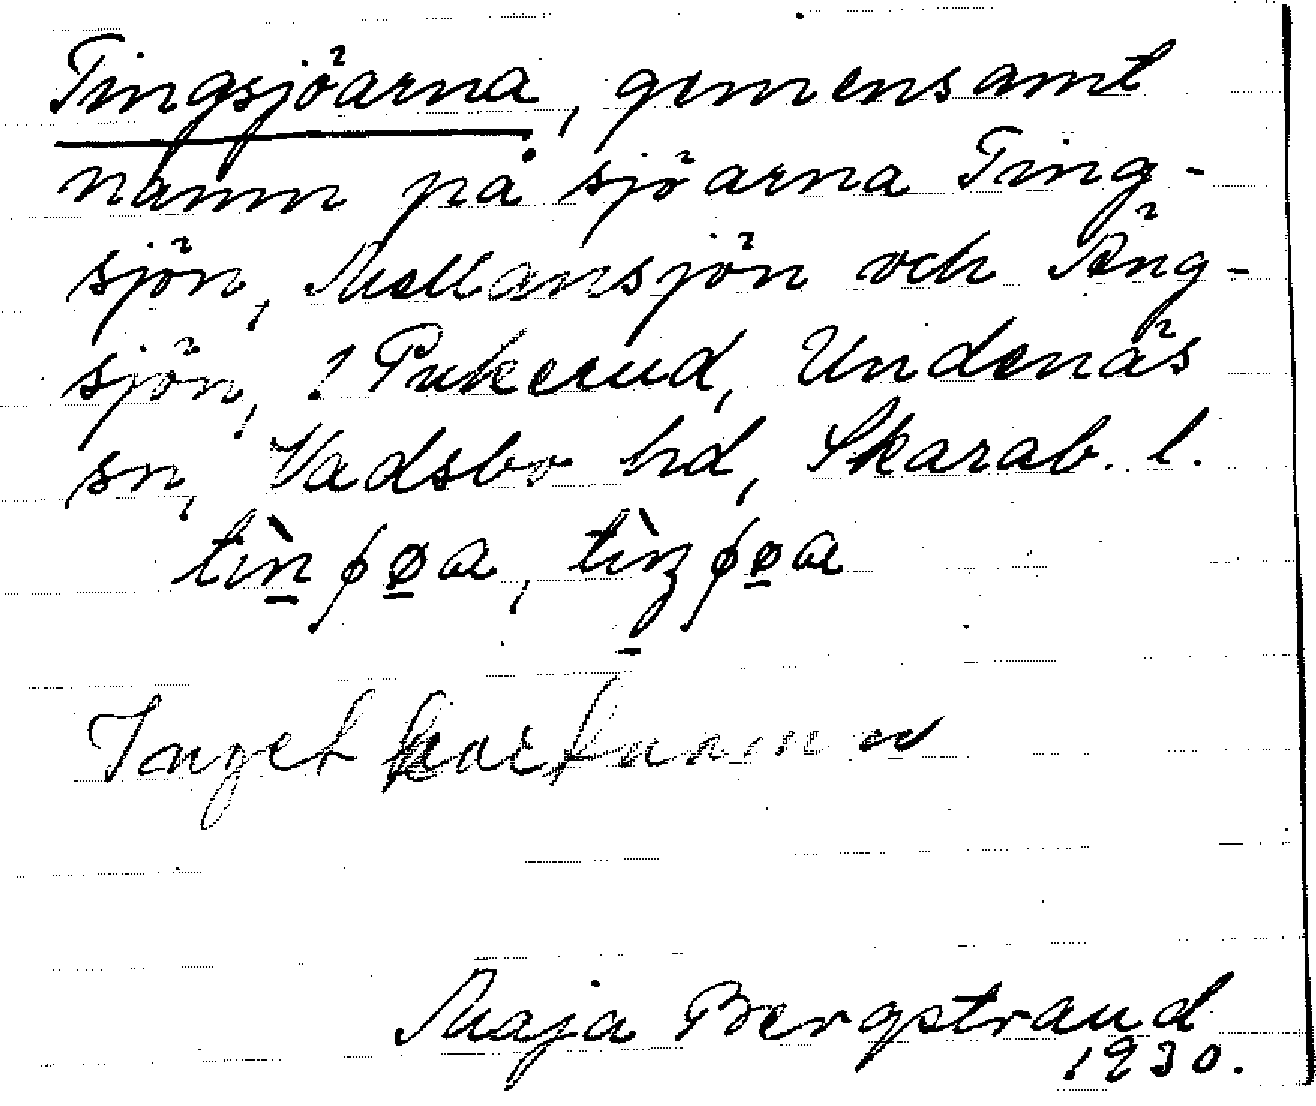 Tingsjöarna, gemensamt
namn på sjöarna Ting-
sjön, Mellansjön och Äng-
sjön, i Pukerud, Undenäs
sn, Vadsbo hd, Skarab. l.
Inget kartnamn
Maja Bergstrand
1930.